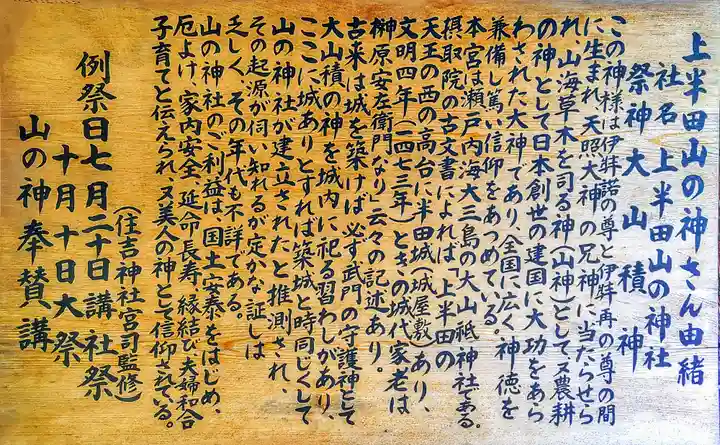 上半田山の神さん由緒
社名 上半田山の神社
祭神 大山積神
この神様は伊弉諾の尊と伊弉再の尊の間
に生まれ天照大神の兄神に当たらせら
れ、山海草木を司る神(山神)としてヌ農耕
の神として日本創世の建国に大功をあら
わされた大神であり、全国に広く神徳を
兼備し篤い信仰をあつめている。
本宮は瀬戸内海大三島の大山祗神社である。
摂取院の古文書によれば「上半田の
天王の西の高台に半田城(城屋敷)あり、
文明四年(一四七三年)ときの城代家老は
榊原安左衛門なり」云々の記述あり。
古来は城を築けば必ず武門の守護神として
大山積の神を城内に祀る習わしがあり、
ここに城ありとすれば築城と時同じくして
山の神社が建立されたと推測され、
その起源が伺い知れるが定かな証しは
乏しく、その年代も不詳である。
山の神社のご利益は国土安泰をはじめ、
厄よけ 家内安全 延命長寿 縁結び夫婦和合
子育てと伝えられヌ美人の神として信仰されている。
(住吉神社宮司監修)
例祭日七月二十日講社祭
十月十日大祭
山の神奉賛講